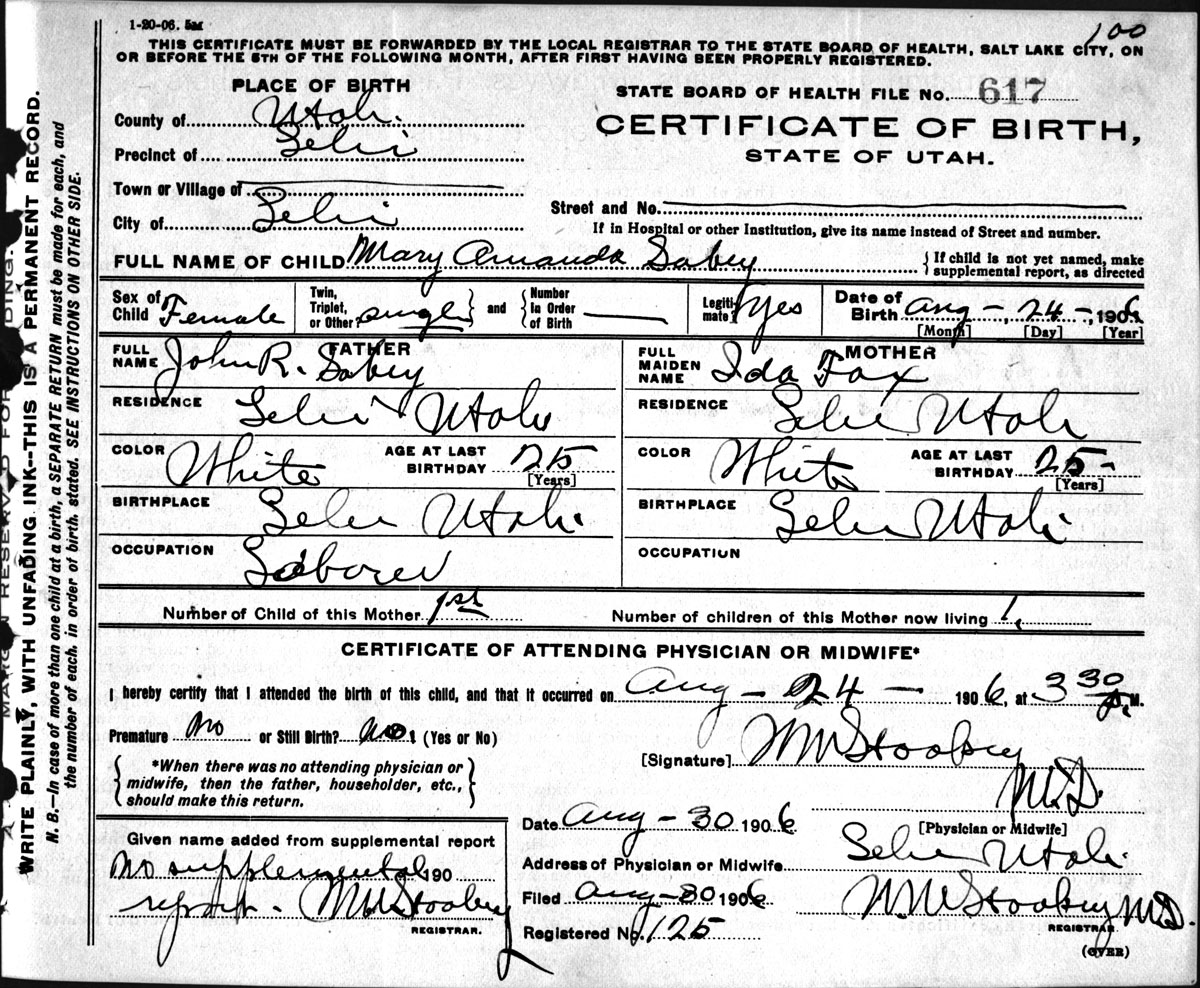 1-20-06. 5M
100
THIS CERTIFICATE MUST BE FORWARDED BY THE LOCAL REGISTRAR TO THE STATE BOARD OF HEALTH, SALT LAKE CITY, ON
OR BEFORE THE 5TH OF THE FOLLOWING MONTH, AFTER FIRST HAVING BEEN PROPERLY REGISTERED.
PLACE OF BIRTH
County of Utah.
Precinct of Lehi
Town or Village of
City of Lehi
STATE BOARD OF HEALTH FILE No. 617
CERTIFICATE OF BIRTH,
STATE OF UTAH.
Street and No.
If in Hospital or other Institution, give its name instead of Street and number.
FULL NAME OF CHILD Mary Amanda Sabey
{If child is not yet named, make
supplemental report, as directed
Sex of Child Female
Twin, Triplet, or Other? Single
and
Number in Order of Birth
Legitimate? Yes
Date of Birth Aug - 24 - 1906
[Month] [Day] [Year]
FATHER
FULL NAME John R. Sabey
RESIDENCE Lehi Utah
COLOR White AGE AT LAST BIRTHDAY 25 [Years]
BIRTHPLACE Lehi Utah
OCCUPATION Laborer
MOTHER
FULL MAIDEN NAME Ida Fox
RESIDENCE Lehi Utah
COLOR White AGE AT LAST BIRTHDAY 25- [Years]
BIRTHPLACE Lehi Utah
OCCUPATION
Number of Child of this Mother 1st Number of children of this Mother now living 1.
CERTIFICATE OF ATTENDING PHYSICIAN OR MIDWIFE*
I hereby certify that I attended the birth of this child, and that it occurred on Aug - 24 - 1906, at 3 30 P. M.
Premature No or Still Birth? No (Yes or No)
*When there was no attending physician or
midwife, then the father, householder, etc.,
should make this return.
[Signature] Stoobey
M.D.
[Physician or Midwife]
Date Aug - 30 1906
Address of Physician or Midwife Lehi Utah
Filed Aug - 30 1906 Stoobey M.D.
REGISTRAR.
Registered No. 125
(OVER)
Given name added from supplemental report
No supplemental 190
report. Stoobey
REGISTRAR.
MARGIN RESERVED FOR BINDING.
WRITE PLAINLY, WITH UNFADING INK--THIS IS A PERMANENT RECORD.
N. B.--In case of more than one child at a birth, a SEPARATE RETURN must be made for each, and
the number of each, in order of birth, stated. SEE INSTRUCTIONS ON OTHER SIDE.